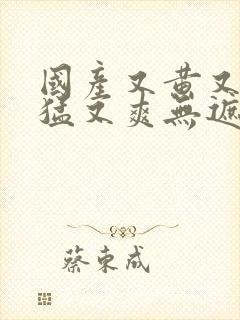 國產又黃又
猛又爽無遮
蔡東成